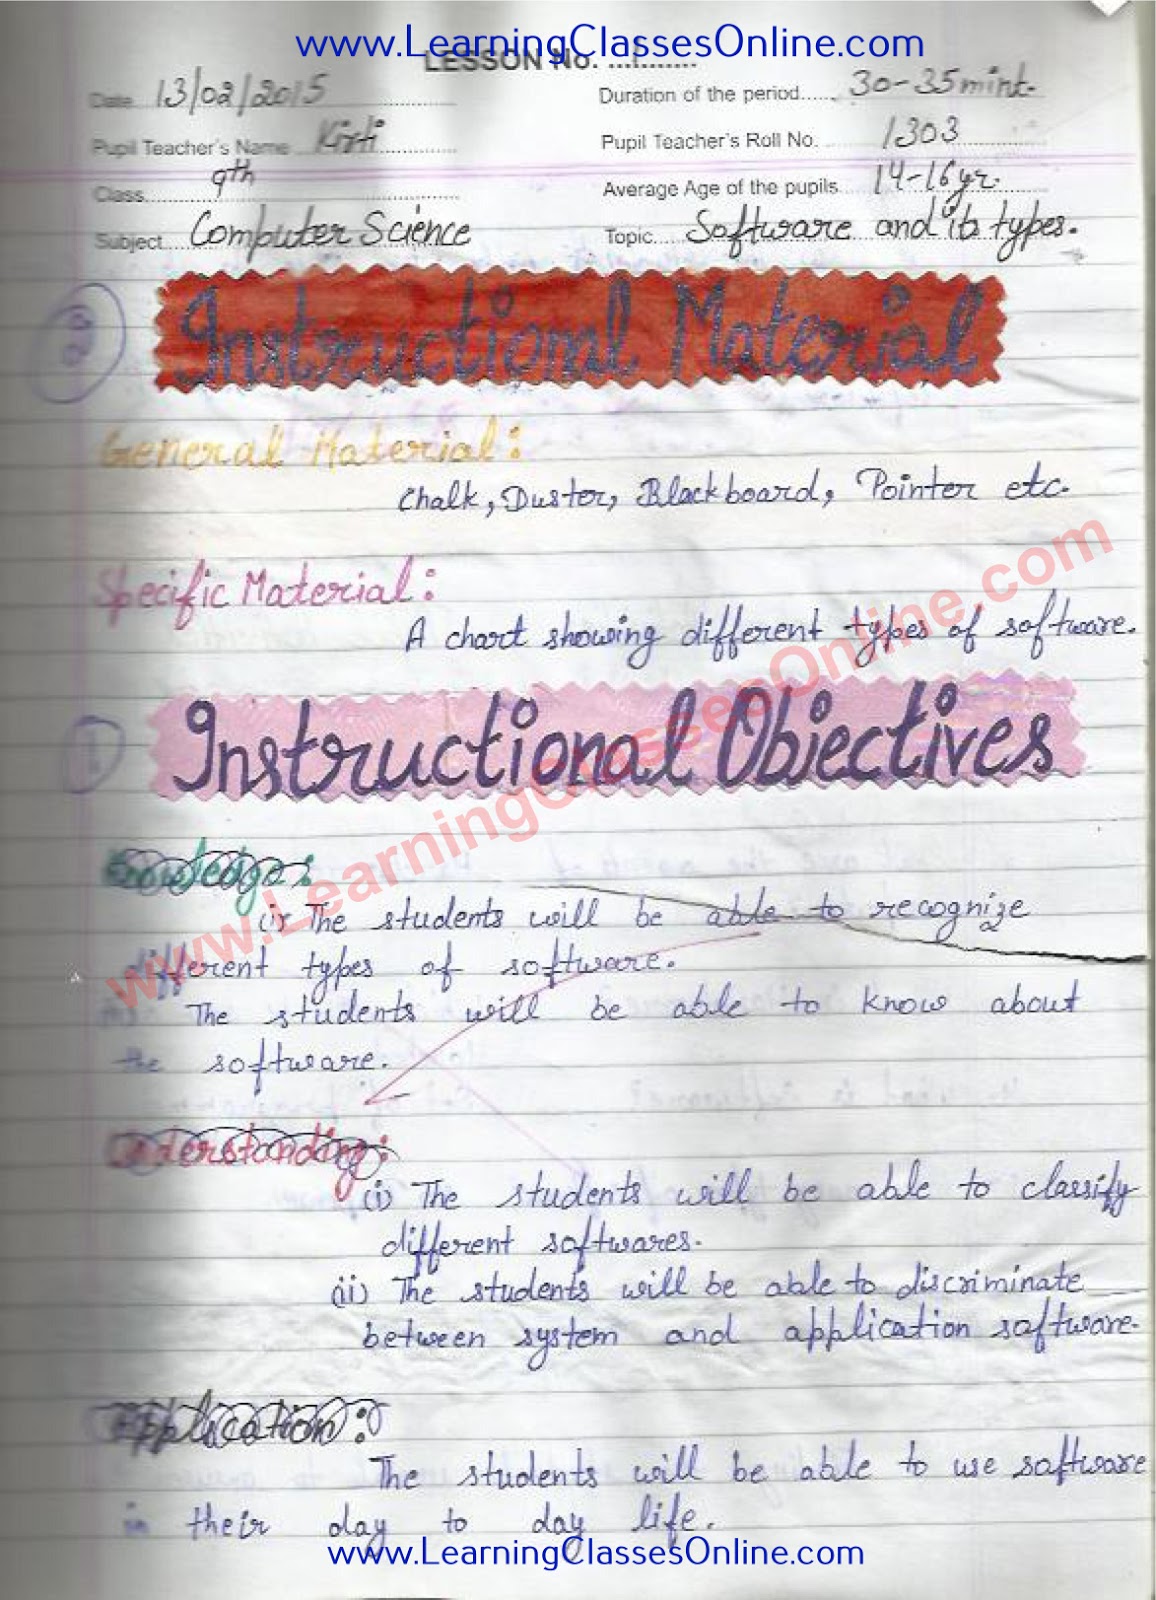 www.LearningClassesOnline.com
LESSON No. ...1.......
Date 13/02/2015 Duration of the period...... 30-35 mint.
Pupil Teacher's Name Kirti Pupil Teacher's Roll No. 1303
Class 9th Average Age of the pupils 14-16 yr.
Subject Computer Science Topic Software and its types.
2
Instructional Material
General Material:
Chalk, Duster, Blackboard, Pointer etc.
Specific Material:
A chart showing different types of software.
1
Instructional Objectives
Knowledge:
(i) The students will be able to recognize
different types of software.
The students will be able to know about
the software.
Understanding:
(i) The students will be able to classify
different softwares.
(ii) The students will be able to discriminate
between system and application software.
Application:
The students will be able to use software
in their day to day life.
www.LearningClassesOnline.com
www.LearningClassesOnline.com